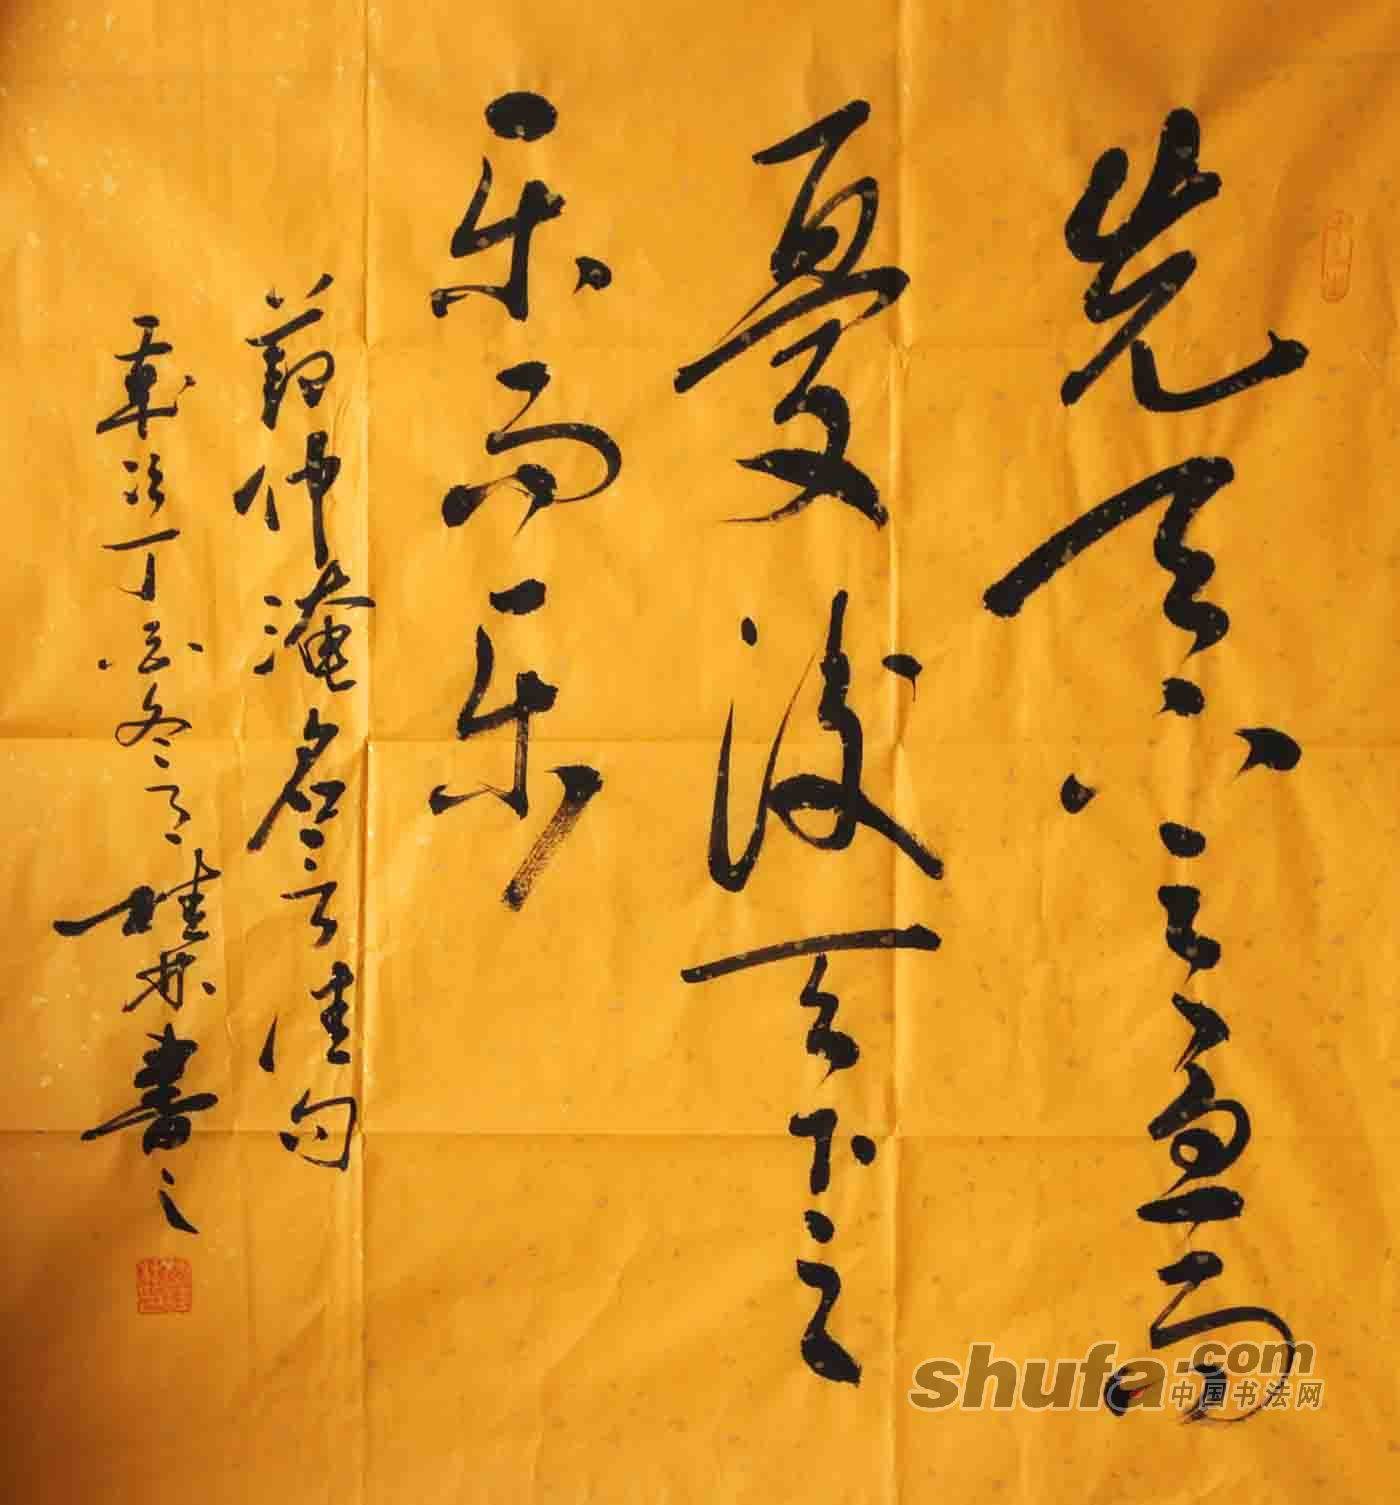 先天下之憂而
憂後天下之
乐而乐
范仲淹名言佳句
歲次丁冬桂林書之
shufa.com
中国书法网